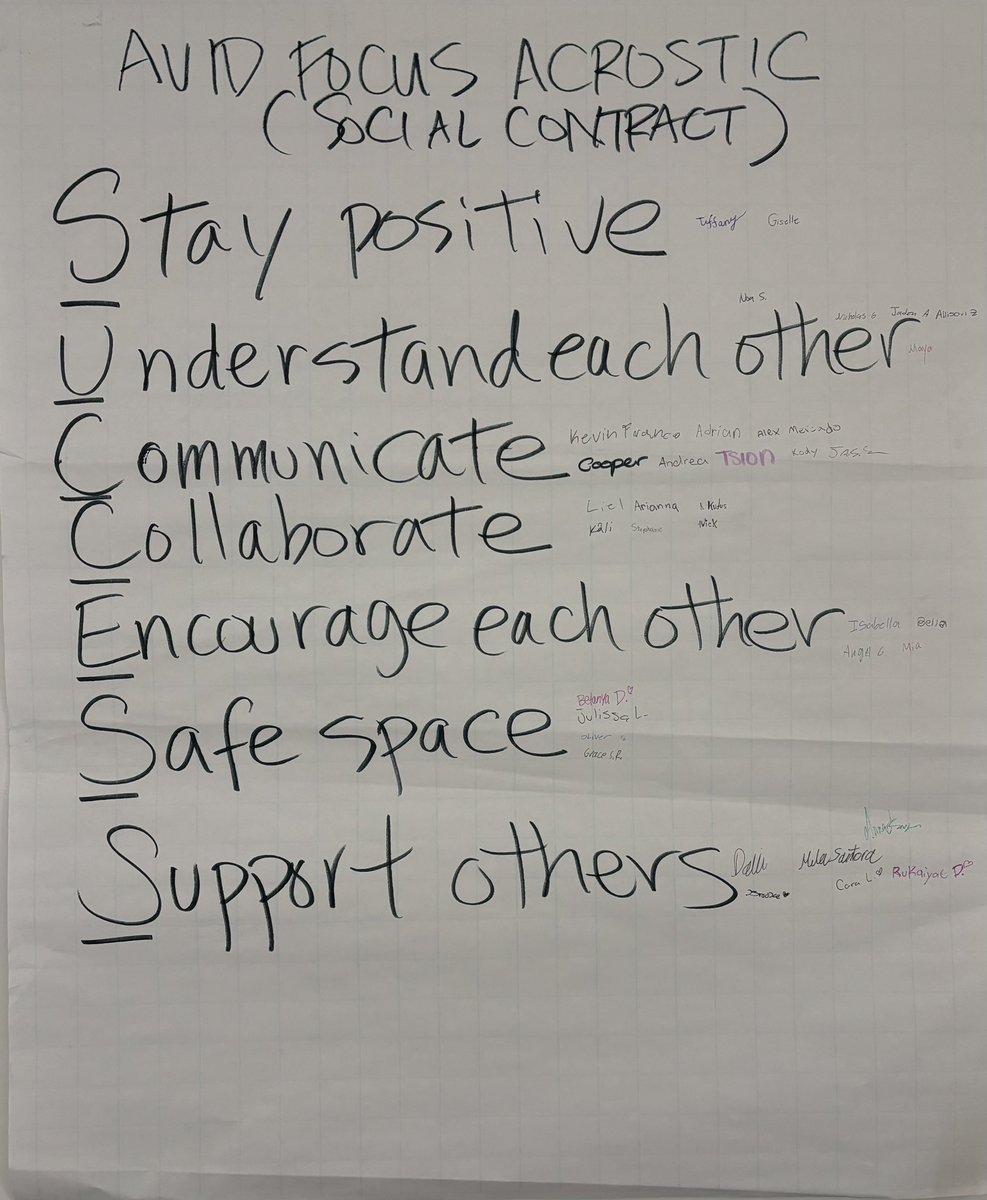 AVID FOCUS ACROSTIC
(SOCIAL CONTRACT)
Stay positive Tiffany Giselle
Noa S.
Nicholas G Jordan A Allison Z
Understand each other Maya
Communicate Kevin Franco Adrian Alex Mercado
Cooper Andrea TSION Kody
Collaborate Liel Arianna
Kali Stephanie Nick
Encourage each other Isabella
Angel G Mia
Safe space Betanya D.
Julissa L.
Oliver
Grace S.R.
Support others
Mila Santora
Cora L Rukaiyat D.